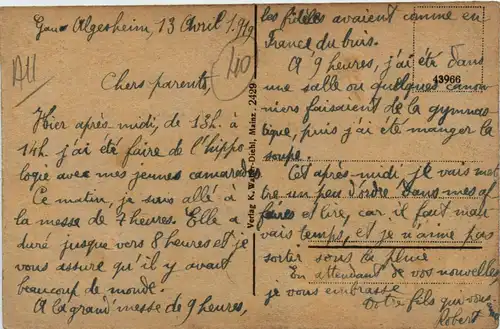 Gau-Algesheim, 13 Avril 1.919
All
40
Chers parents,
Hier après-midi, de 13h. à
14h. j'ai été faire de l'hippo
logie avec mes jeunes camarades
Ce matin, je suis allé à
la messe de 7 heures. Elle a
duré jusque vers 8 heures et je
vous assure qu'il y avait
beaucoup de monde.
A la grand'messe de 9 heures,
Verlag K. Diehl, Mainz. 2429
les fidèles avaient comme en
France du buis.
43966
A 9 heures, j'ai été dans
une salle où quelques canon
niers faisaient de la gymnas
tique, puis j'ai été manger la
soupe.
Cet après-midi, je vais met
tre un peu d'ordre dans mes af
faires et lire, car il fait mau
vais temps, et je n'aime pas
sortir sous la pluie
En attendant de vos nouvelles
je vous embrasse
Votre fils qui vous
Robert